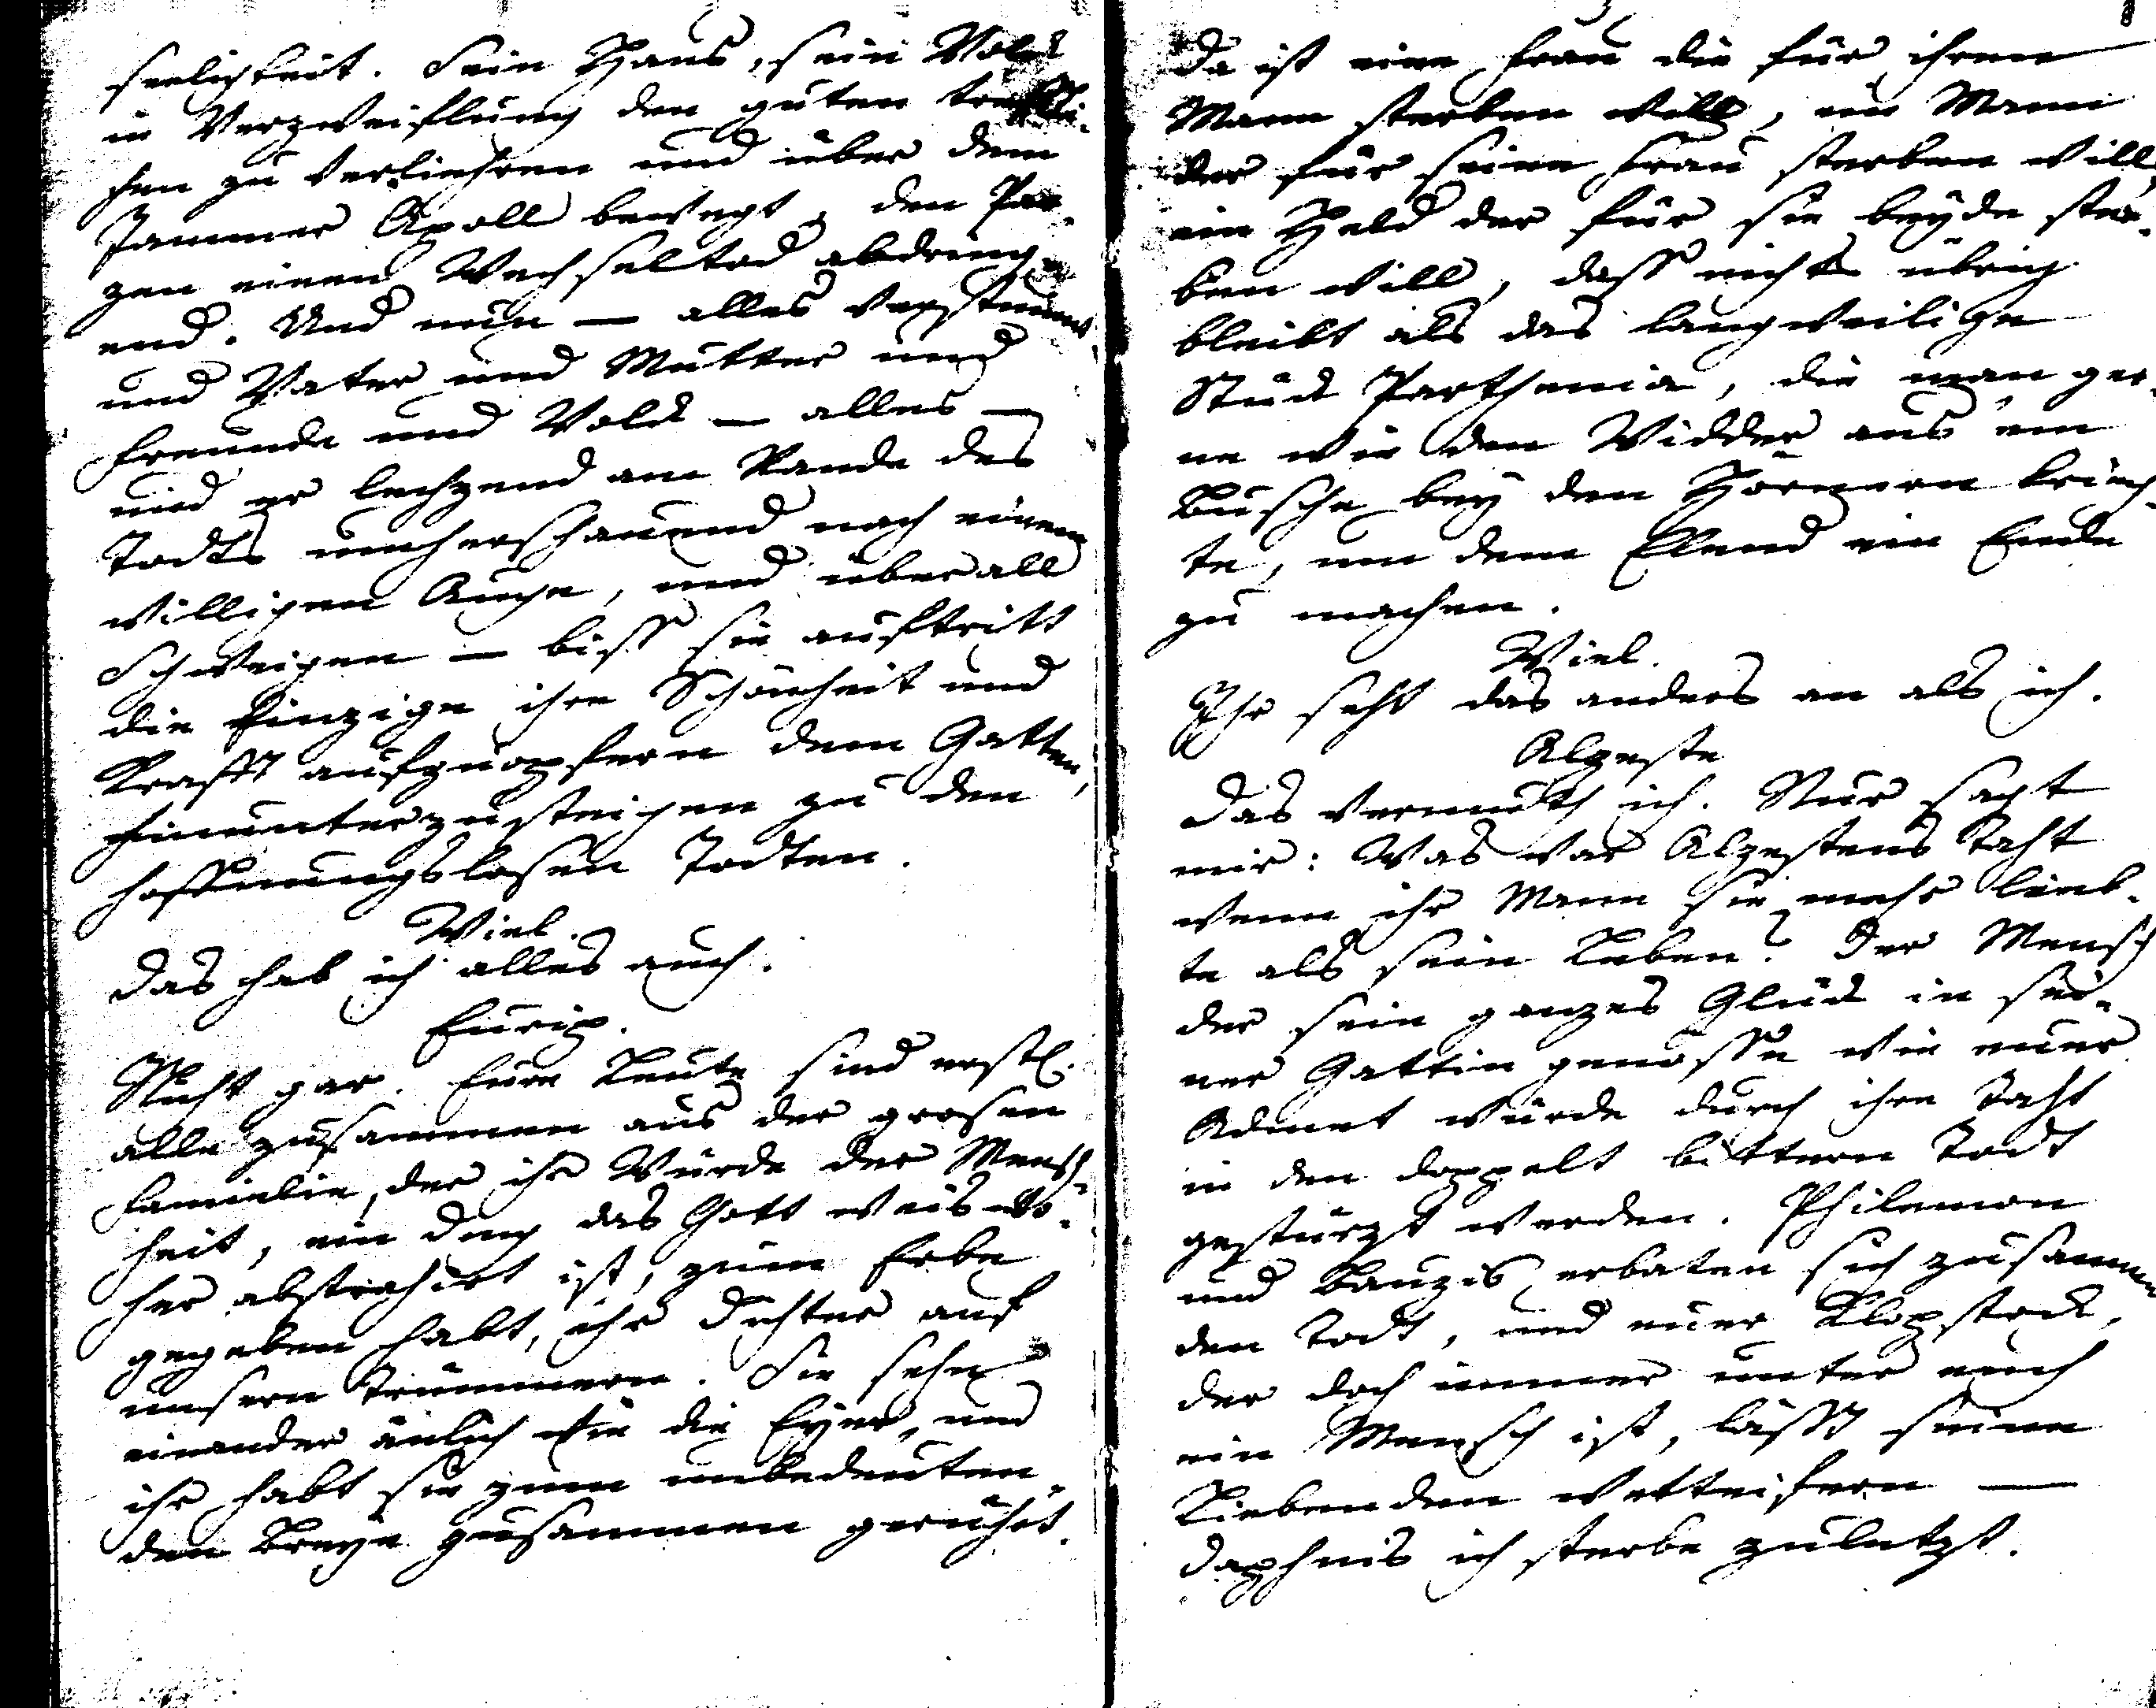 seeligkeit. Sein Haus, sein Volck
in Verzweiflung den guten treffli-
chen zu verliehren und über dem
Jammer Apoll bewegt, den Par-
zen einen Wechseltod abdring-
end. Und nun — alles verstummt
und Vater und Mutter und
Freunde und Volck — alles —
und er lechzend am Rande des
Todts umherschauend nach einem
willigen Auge, und überall
Schweigen — biss sie auftritt
die Einzige ihre Schönheit und
Krafft aufzuopfern dem Gatten,
hinunterzusteigen zu den
hoffnungslosen Todten.
Wiel.
Das hab ich alles auch.
Eurip.
Nicht gar. Eure Leute sind erstl.
alle zusammen aus der grosen
Familie, der ihr Würde der Mensch-
heit, ein Ding das Gott weis wo-
her abstrahirt ist, zum Erbe
gegeben habt, ihr Dichter auf
unsern Trümmern. Sie sehn
einander änlich wie die Eyer, und
ihr habt sie zum unbedeuten-
den Breye zusammen gerührt.
Da ist eine Frau die für ihren
Mann sterben will, ein Mann
der für seine Frau sterben will,
ein Held der für sie beyde ster-
ben will, dass nichts übrig
bleibt als das langweilige
Stück Parthenia, die man ger-
ne wie den Widder aus em
Busche bey den Hörnern krieg-
te, um dem Elend ein Ende
zu machen.
Wiel.
Ihr seht das anders an als ich.
Alzeste
Das vermuth ich. Nur sagt
mir: Was war Alzestens Taht
wenn ihr Mann sie mehr lieb-
te als sein Leben? Der Mensch
der sein ganzes Glück in sei-
ner Gattin genösse wie euer
Admet würde durch ihre Taht
in den doppelt bittern Todt
gestürzt werden. Philemon
und Bauzis erbaten sich zusammen
den Todt, und euer Klopstock,
der doch immer unter euch
ein Mensch ist, lässt seine
Liebenden wetteifern —
Daphnis ich sterbe zuletzt.